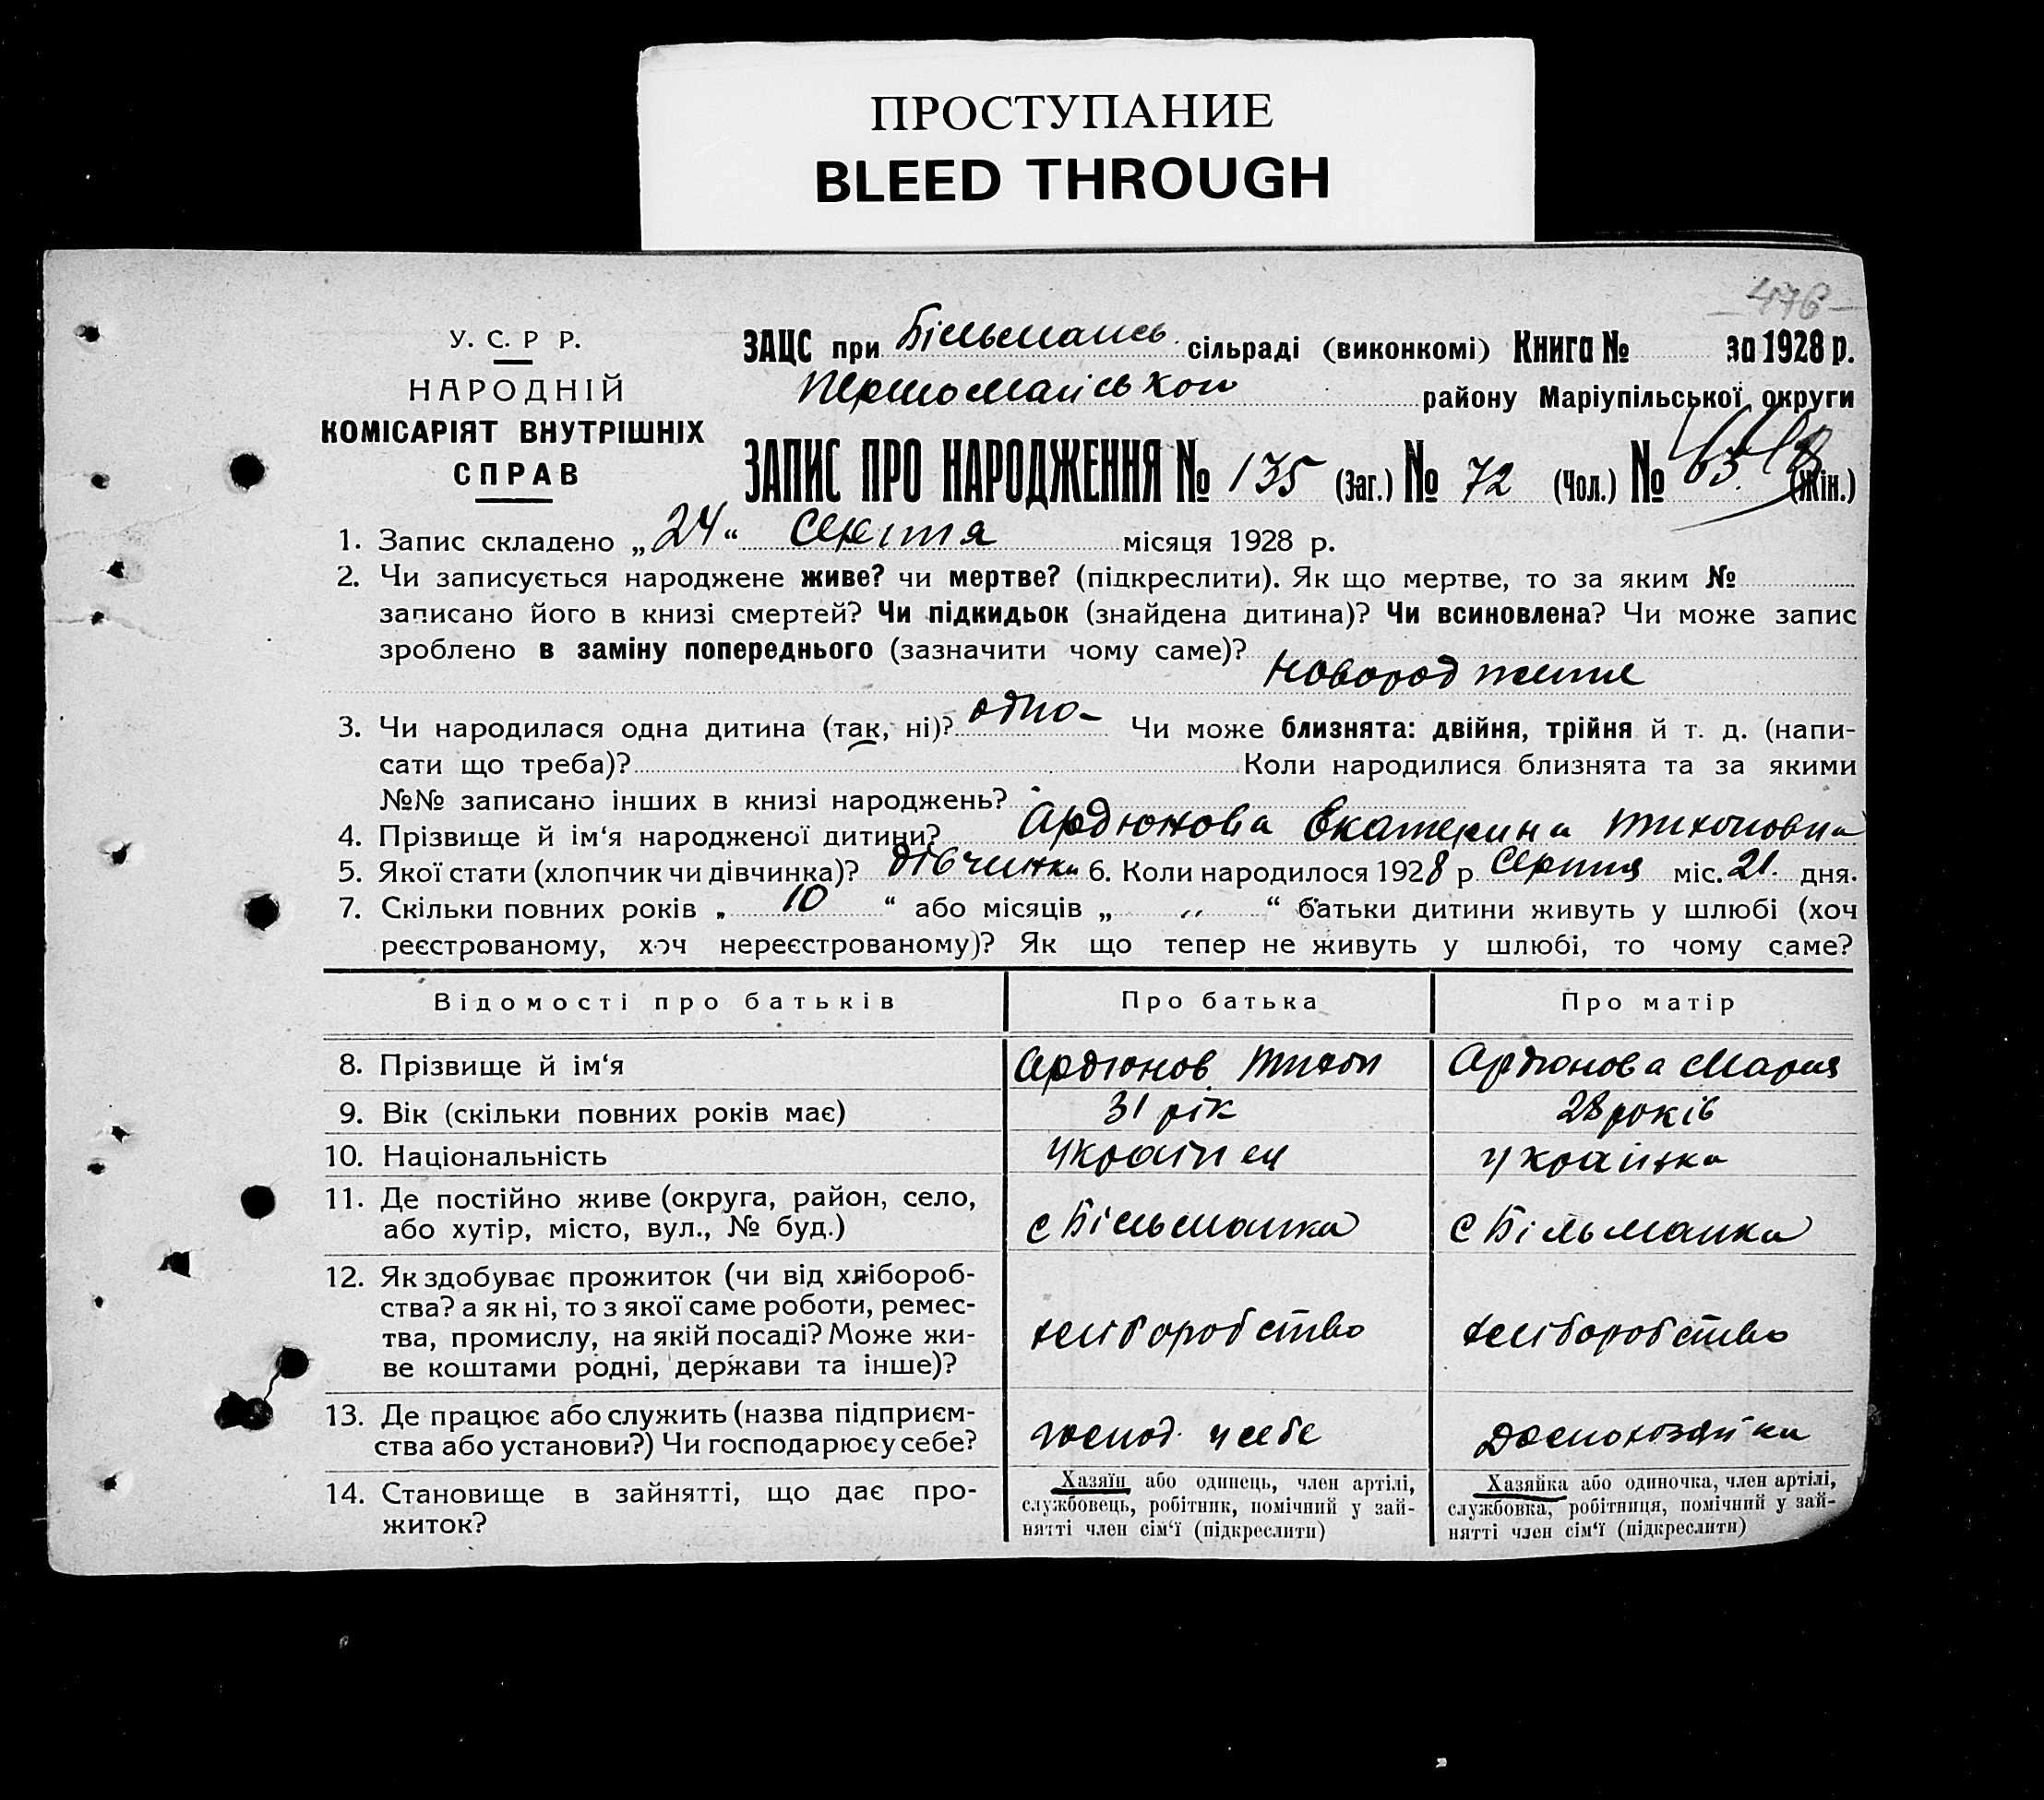 ПРОСТУПАНИЕ
BLEED THROUGH
476
У. С. Р Р.
НАРОДНІЙ
КОМІСАРІЯТ ВНУТРІШНІХ
СПРАВ
ЗАЦС при Більмансь. сільраді (виконкомі) Книга № за 1928 р.
Першомайської району Маріупільської округи
ЗАПИС ПРО НАРОДЖЕННЯ № 135 (Заг.) № 72 (Чол.) № 63 (Жін.)
1. Запис складено „24“ Серпня місяця 1928 р.
2. Чи записується народжене живе? чи мертве? (підкреслити). Як що мертве, то за яким №
записано його в книзі смертей? Чи підкидьок (знайдена дитина)? Чи всиновлена? Чи може запис
зроблено в заміну попереднього (зазначити чому саме)?
новород
3. Чи народилася одна дитина (так, ні)? одно Чи може близнята: двійня, трійня й т. д. (напи-
сати що треба)? Коли народилися близнята та за якими
№№ записано інших в книзі народжень?
4. Прізвище й ім‘я народженої дитини? Ардюнова Екатерина Тихоновна
5. Якої стати (хлопчик чи дівчинка)? дівчинка 6. Коли народилося 1928 р Серпня міс. 21. дня.
7. Скільки повних років „ 10 “ або місяців „ “ батьки дитини живуть у шлюбі (хоч
реєстрованому, хоч нереєстрованому)? Як що тепер не живуть у шлюбі, то чому саме?
Відомості про батьків Про батька Про матір
8. Прізвище й ім‘я Ардюнов Тихон Ардюнова Мария
9. Вік (скільки повних років має) 31 рік 28 років
10. Національність Українец Українка
11. Де постійно живе (округа, район, село,
або хутір, місто, вул., № буд.) с Більманка с Більманка
12. Як здобуває прожиток (чи від хлібороб-
ства? а як ні, то з якої саме роботи, ремес-
тва, промислу, на якій посаді? Може жи-
ве коштами родні, держави та інше)? хліборобство хліборобство
13. Де працює або служить (назва підприєм-
ства або установи?) Чи господарює у себе? господ. у себе Домохозяйка
14. Становище в зайнятті, що дає про-
житок?
Хазяїн або одинець, член артілі,
службовець, робітник, помічний у зай-
нятті член сім‘ї (підкреслити)
Хазяйка або одиночка, член артілі,
службовка, робітниця, помічний у зай-
нятті член сім‘ї (підкреслити)